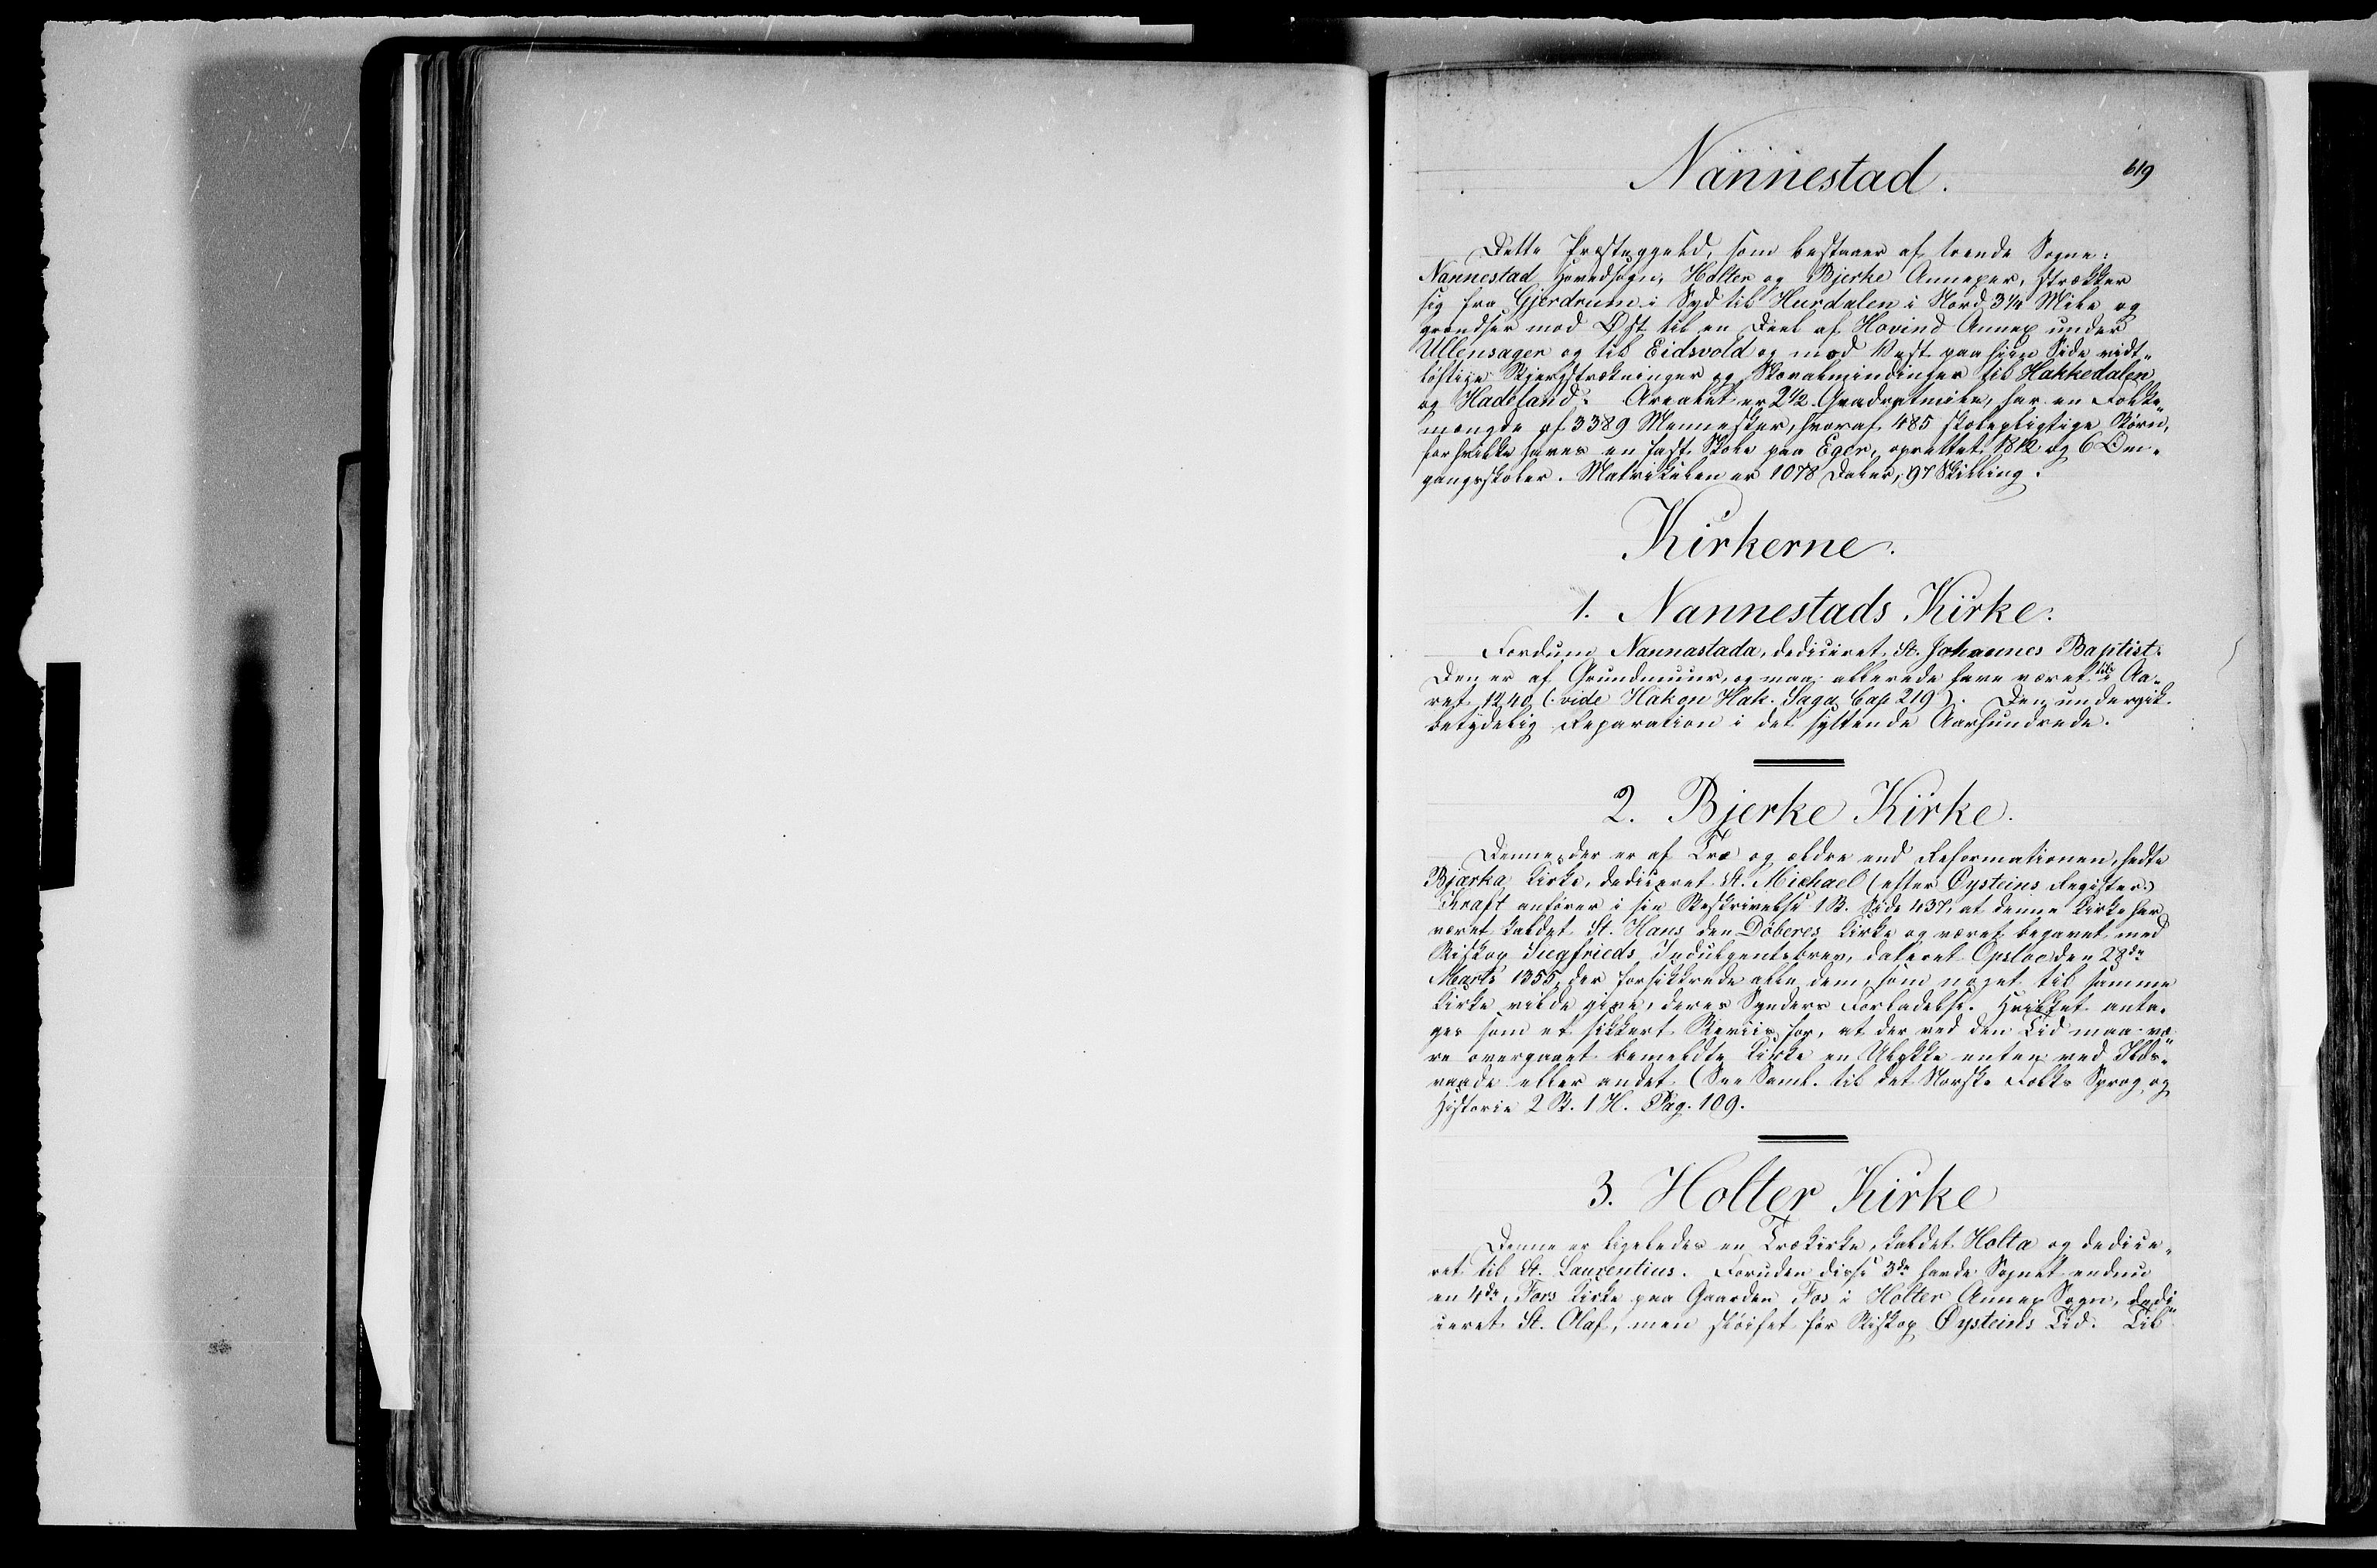 Nannestad.
619
Dette Præstegjeld, som bestaaer af trende Sogne:
Nannestad Hovedsogn, Holter og Bjerke Annexer, strækker
sig fra Gjerdrum i Syd til Hurdalen i Nord 3 1/4 Mile og
grændser mod Øst til en Deel af Hovind Annex under
Ullensager og til Eidsvold og mod Vest paa hiin Side vidt„
løftige Bjergstrækninger og Skovalmindinger til Hakkedalen
og Hadeland. Arealet er 2 1/2 Qvadratmile, har en Folke„
mængde af 3389 Mennesker, hvoraf 485 skolepligtige Børn,
for hvilke haves en fast Skole paa Eger, oprettet 1812 og 6 Om„
gangsskoler. Matrikulen er 1078 Daler, 97 Skilling.
Kirkerne.
1. Nannestads Kirke.
Fordum Nannastada, dediceret St. Johannes Baptist.
Den er af Grundmuur, og maa allerede have været til i Aa„
ret 1240 (: vide Hakon Hak. Saga Cap 219). Den undergik
betydelig Reparation i det syttende Aarhundrede.
2. Bjerke Kirke.
Denne, der er af Træ og ældre end Reformationen, hedte
Bjarka Kirke, dediceret St. Michael (efter Øysteins Register.)
Kraft anfører i sin Beskrivelse 1 B. Side 437, at denne Kirke har
været kaldet St. Hans den Döberes Kirke og været begavet med
Biskop Siegfrieds Indulgentsbrev, dateret Opsloe den 28de
Marts 1355, der forsikkrede alle dem, som noget til samme
Kirke vilde give, deres Synders Forladelse. Hvilket anta„
ges som et sikkert Beviis for, at der ved den Tid maa væ„
re overgaaet bemeldte Kirke en Ulykke enten ved Ilds„
vaade eller andet (See Saml. til det Norske Folks Sprog og
Historie 2 B. 1 H. Pag. 109.
3. Holter Kirke
Denne er ligeledes en Trækirke, kaldet Holta og dedice„
ret til St. Laurentius. Foruden disse 3de havde Sognet endnu
en 4de, Fors Kirke paa Gaarden Fos i Holter Annex Sogn, dedi„
ceret St. Olaf, men sløifet før Biskop Øysteins Tid. Til